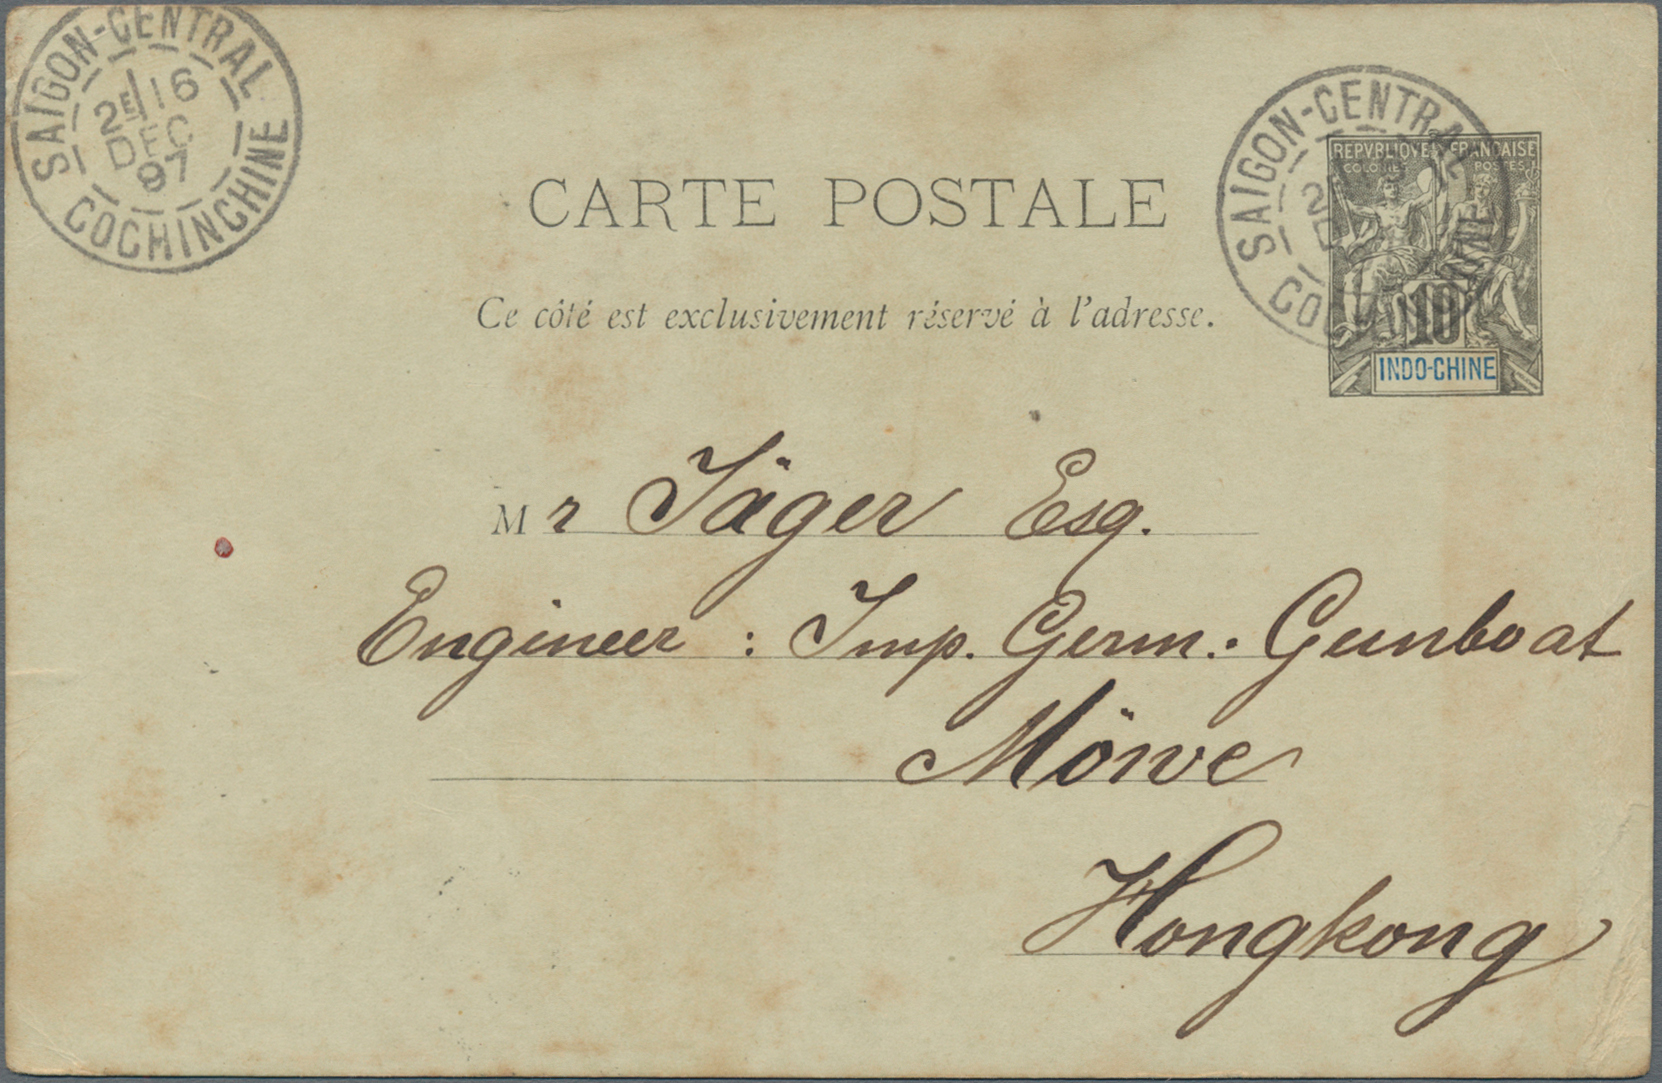 SAIGON-CENTRAL
2E/16
DEC
97
COCHINCHINE
SAIGON-CENTRAL
2
D
COCHINCHINE
REPVBLIQVE FRANCAISE
COLONIES POSTES
10
INDO-CHINE
CARTE POSTALE
Ce côté est exclusivement réservé à l'adresse.
Mr Jäger Esq.
Engineer : Imp. Germ. Gunboat
Möwe
Hongkong